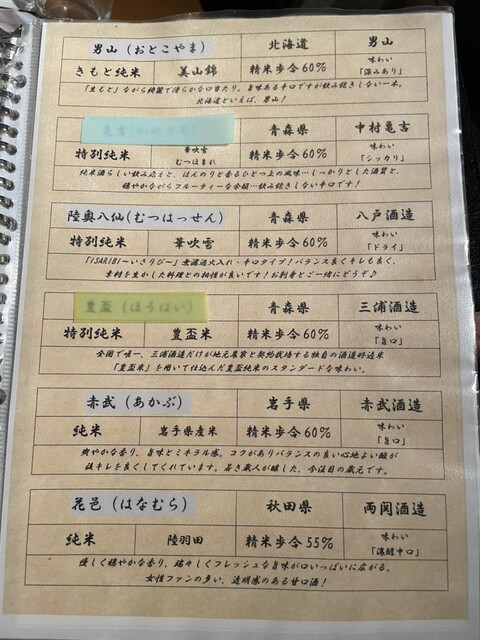 男山（おとこやま） 北海道 男山
きもと純米 美山錦 精米歩合60% 味わい「深みあり」
「生もと」ながら綺麗で滑らかな口当たり。旨味ある辛口ですが飲み飽きしない一本。
北海道といえば、男山！
亀吉（かめきち） 青森県 中村亀吉
特別純米 華吹雪 むつほまれ 精米歩合60% 味わい「シッカリ」
純米酒らしい飲み応えと、ほんのりと香るひとつ上の風味…しっかりとした酒質と、
穏やかながらフルーティーな余韻…飲み飽きしない辛口です！
陸奥八仙(むつはっせん) 青森県 八戸酒造
特別純米 華吹雪 精米歩合60% 味わい「ドライ」
「ISARIBI〜いさりび〜」無濾過火入れ・辛口タイプ！バランス良くキレも良く、
素材を生かした料理との相性が良いです！お刺身とご一緒にどうぞ♪
豊盃（ほうはい） 青森県 三浦酒造
特別純米 豊盃米 精米歩合60% 味わい「旨口」
全国で唯一、三浦酒造だけが地元農家と契約栽培する独自の酒造好適米
「豊盃米」を用いて仕込んだ豊盃純米のスタンダードな味わい。
赤武（あかぶ） 岩手県 赤武酒造
純米 岩手県産米 精米歩合60% 味わい「旨口」
爽やかな香り、旨味とミネラル感。コクがありバランスの良い心地よい酸が
後キレを良くしてくれています。若き蔵人が醸した、今注目の蔵元です。
花邑（はなむら） 秋田県 両関酒造
純米 陸羽田 精米歩合55% 味わい「濃醇中口」
優しく穏やかな香り、瑞々しくフレッシュな旨味が口いっぱいに広がる。
女性ファンの多い、透明感のある甘口酒！